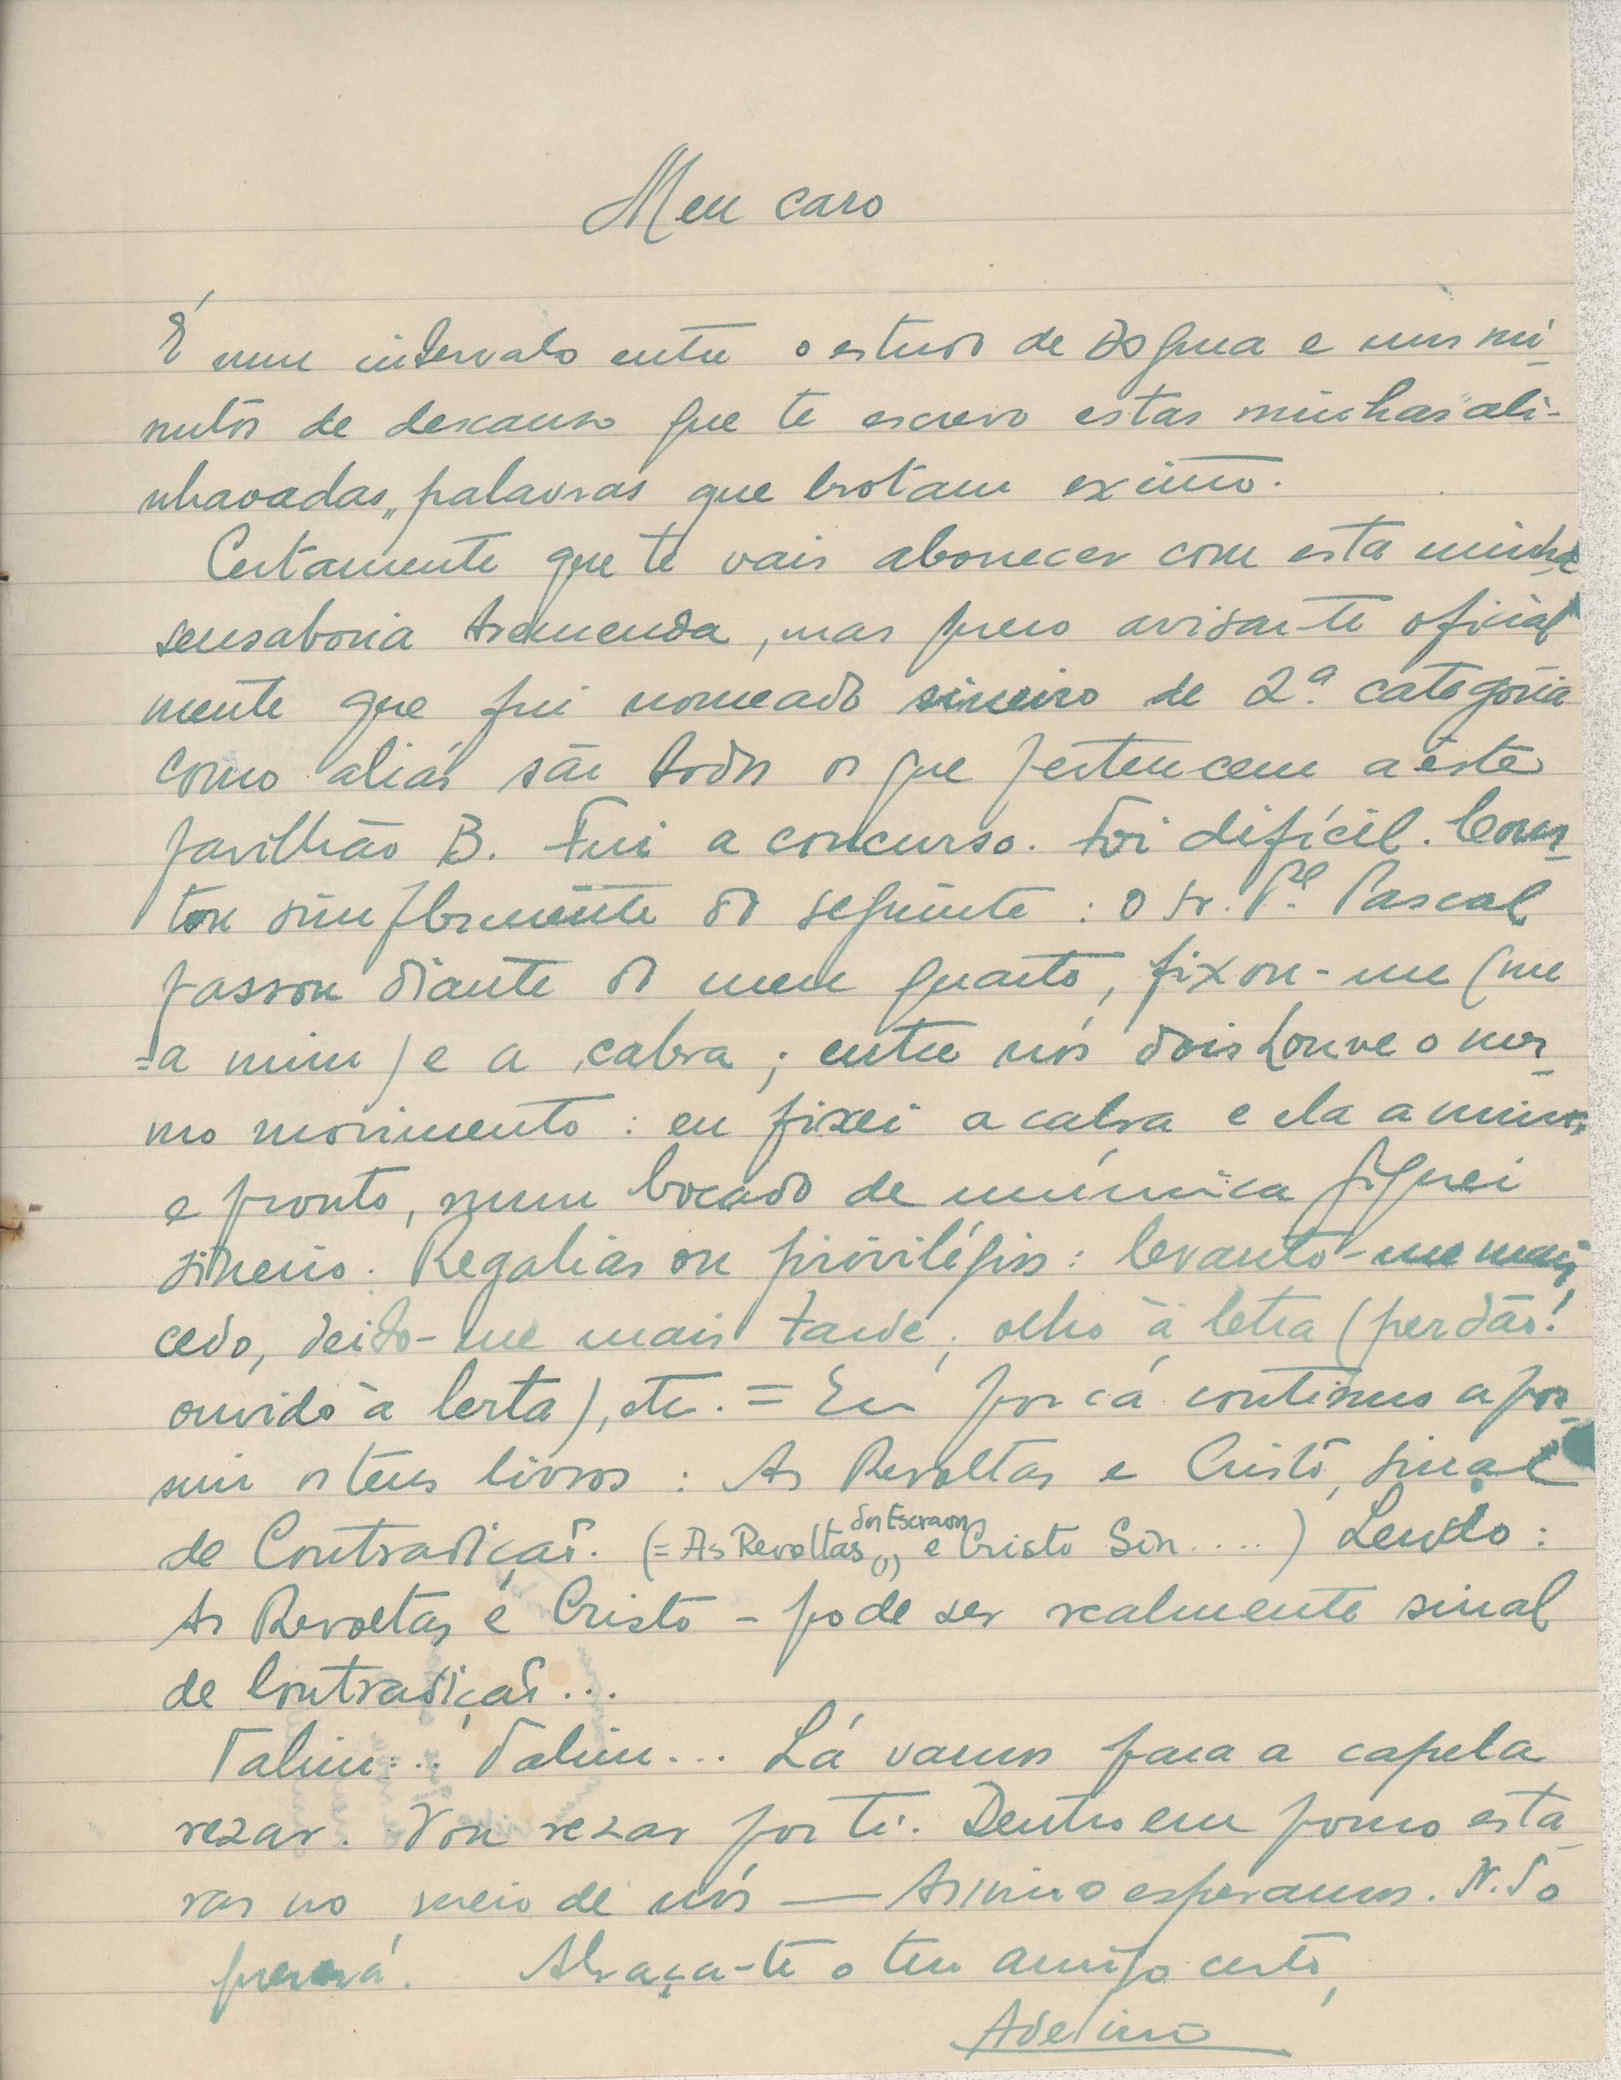 Meu caro
É num intervalo entre o estudo de Dogma e uns mi-
nutos de descanso que te escrevo estas minhas "ali-
nhavadas" palavras que brotam ex imo.
Certamente que te vais aborrecer com esta minha
sensaboria tremenda, mas quero avisar-te oficial
mente que fui nomeado sineiro de 2ª. categoria
como aliás são todos os que pertencem a êste
pavilhão B. Fui a concurso. Foi difícil. Cons-
tou simplesmente do seguinte: o sr. Pe. Pascal
passou diante do meu quarto, fixou-me (me
=a mim) e a cabra; entre nós dois houve o mes-
mo movimento: eu fixei a cabra e ela a mim
e pronto, num bocado de mímica fiquei
sineiro. Regalias ou privilégios: levanto-me mais
cedo, deito-me mais tarde, olho à letra (perdão!
ouvido à lerta), etc. = Eu por cá continuo a pos-
suir os teus livros: As Revoltas e Cristo, sinal
de Contradição. (= As Revoltas dos Escravos (1) e Cristo Sin....) Lendo:
As Revoltas é Cristo - pode ser realmente sinal
de Contradição...
Talim... Talim... Lá vamos para a capela
rezar. Vou rezar por ti. Dentro em pouco esta-
ras no meio de nós — Assim o esperamos. N. So
quererá. Abraça-te o teu amigo certo,
Adelino